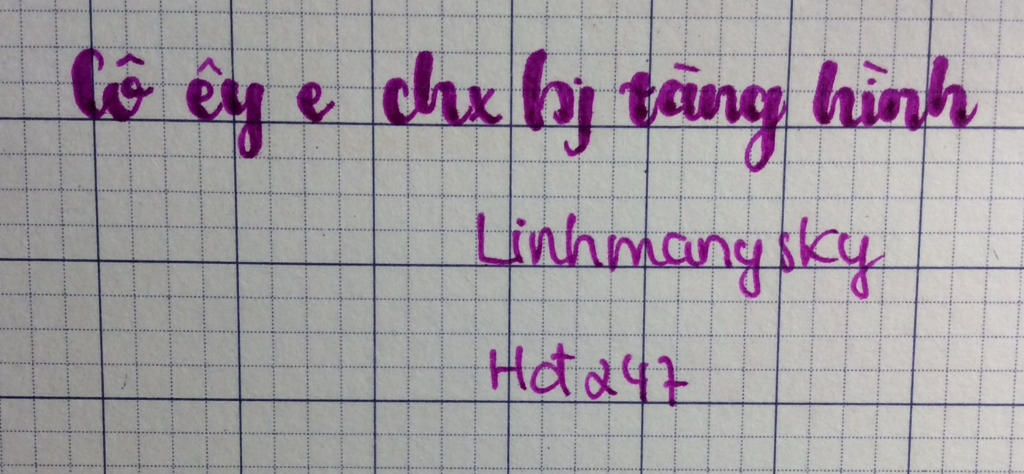 Cô êy e chx bị tàng hình
Linhmangsky
Hđ247